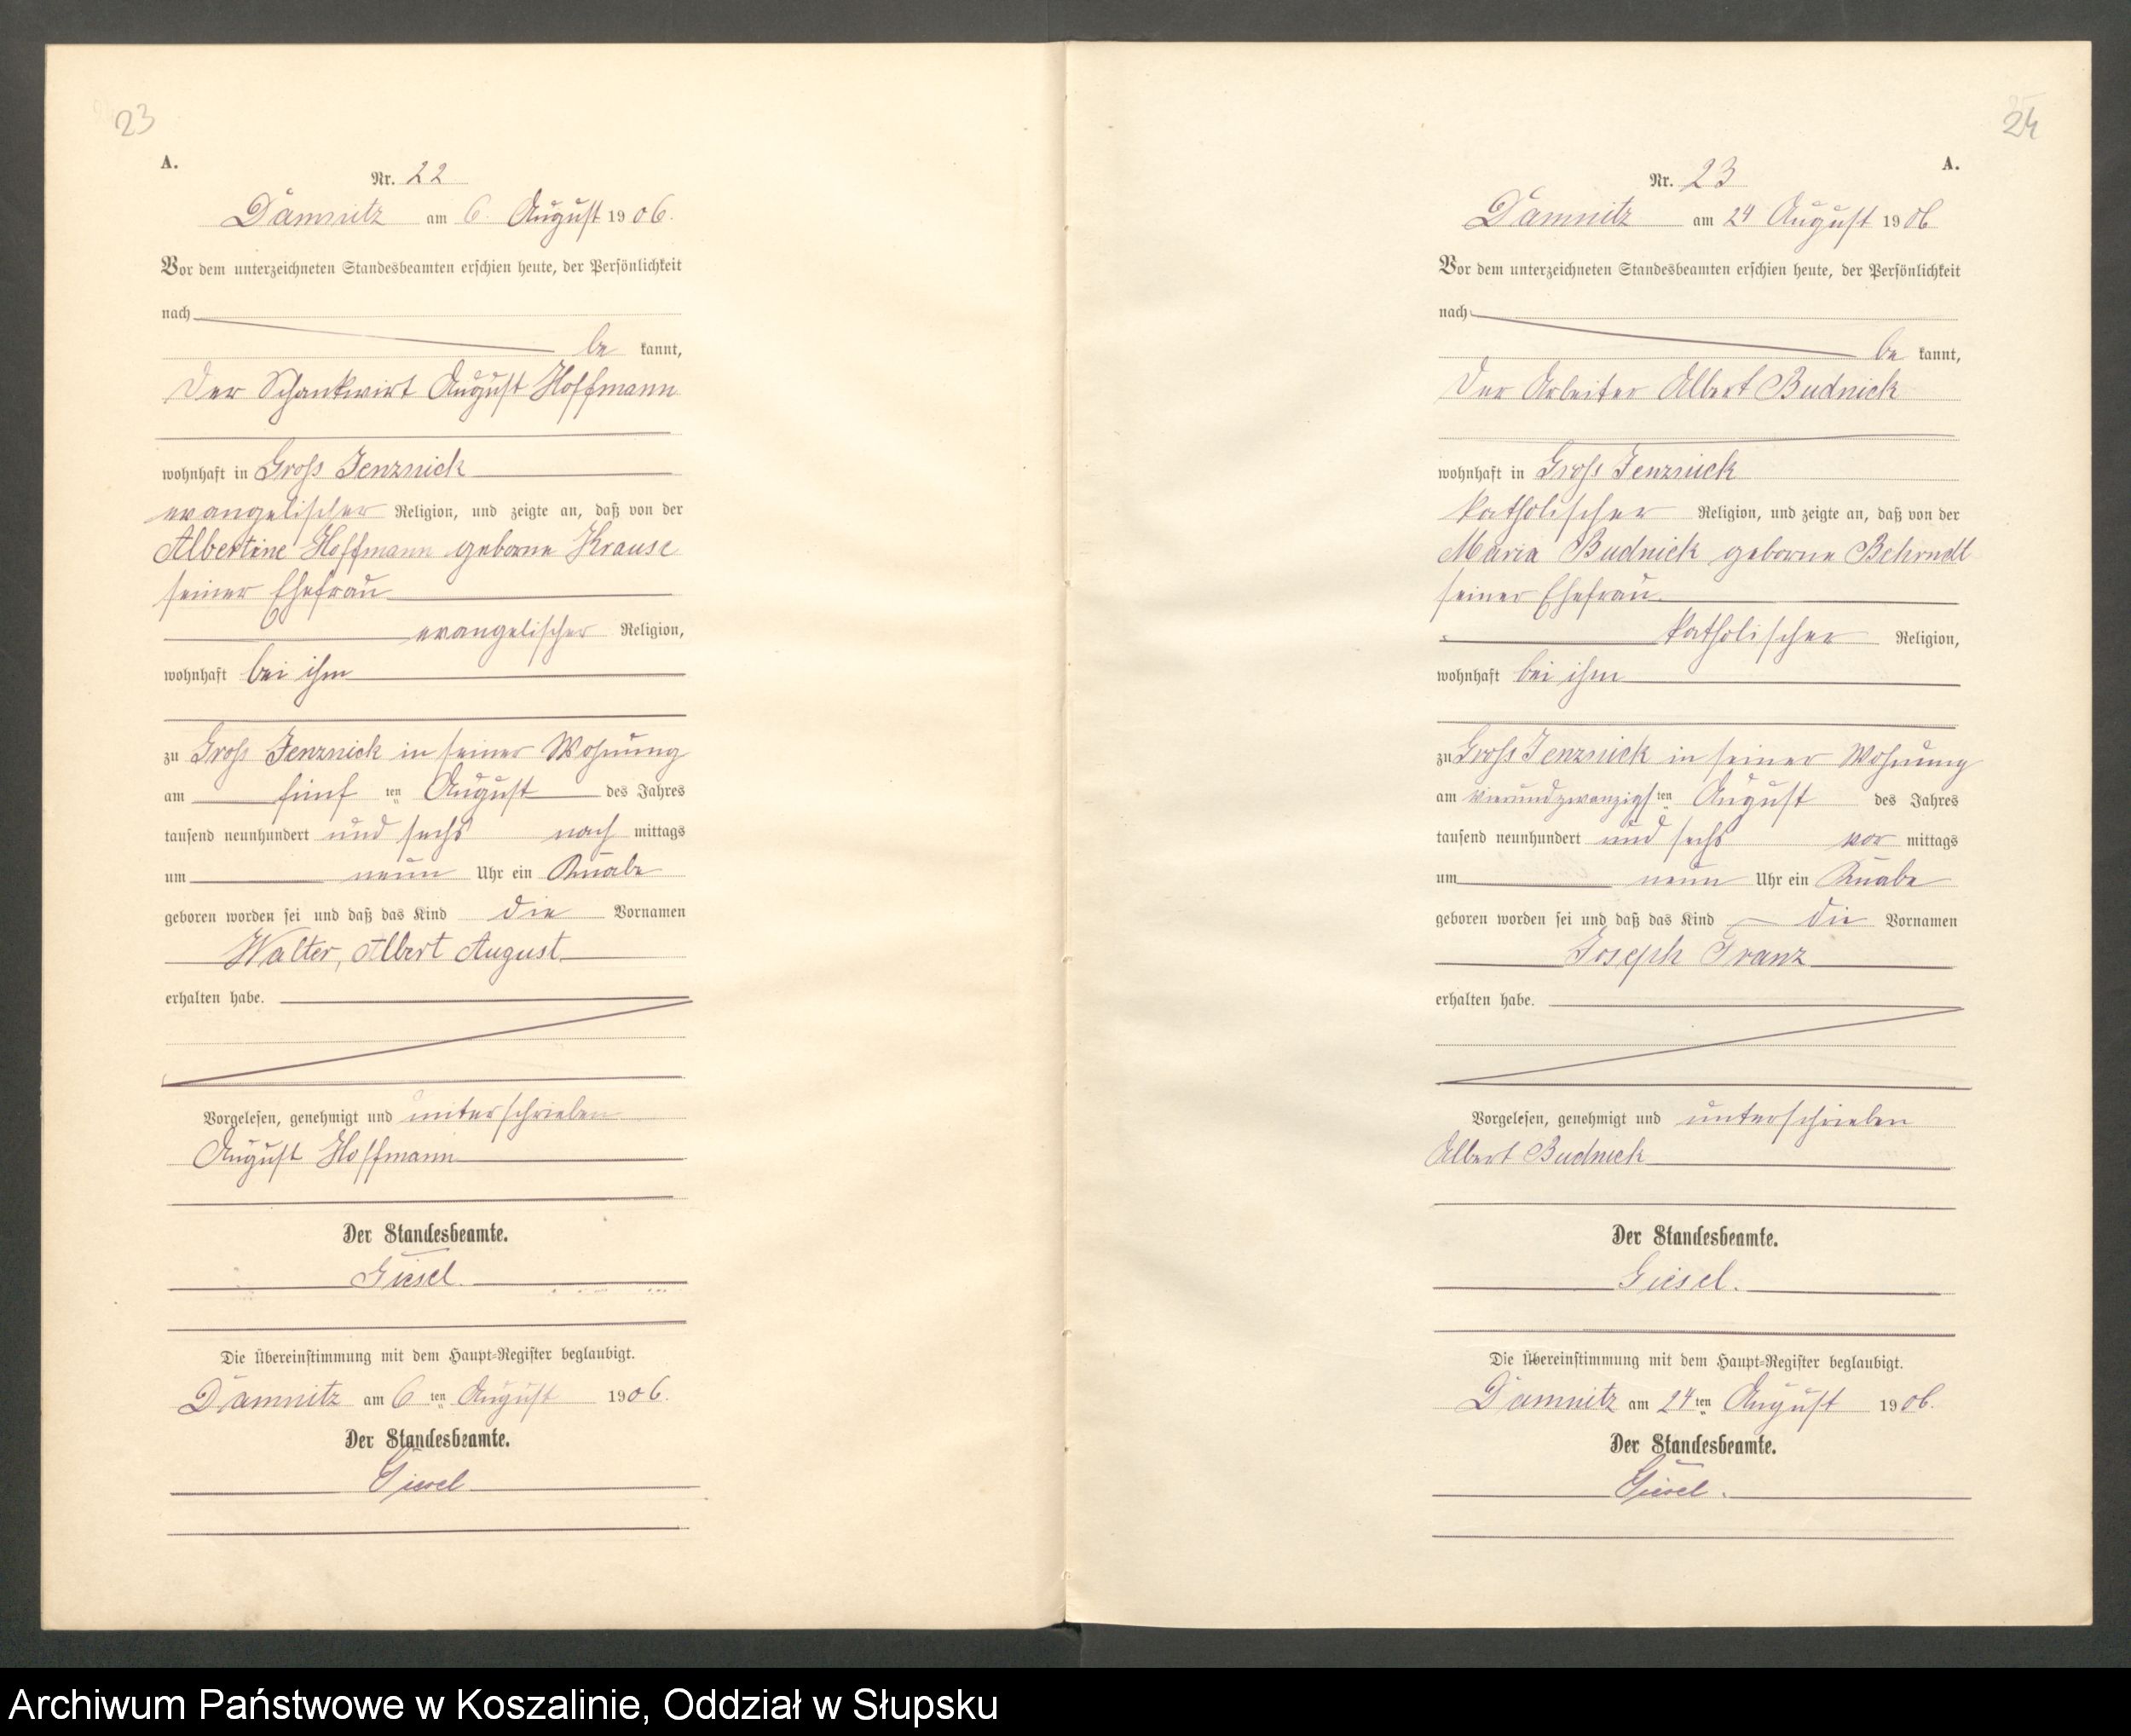 23
A.
Nr. 22
Damnitz am 6. August 1906.
Vor dem unterzeichneten Standesbeamten erschien heute, der Persönlichkeit
nach
be kannt,
der Schankwirt August Hoffmann
wohnhaft in Groß Jenznick
evangelischer Religion, und zeigte an, daß von der
Albertine Hoffmann geborne Krause
seiner Ehefrau
evangelischer Religion,
wohnhaft bei ihm
zu Groß Jenznick in seiner Wohnung
am fünf ten August des Jahres
tausend neunhundert und sechs nach mittags
um neun Uhr ein Knabe
geboren worden sei und daß das Kind die Vornamen
Walter, Albert August
erhalten habe.
Vorgelesen, genehmigt und unterschrieben
August Hoffmann
Der Standesbeamte.
Giesel.
Die Übereinstimmung mit dem Haupt-Register beglaubigt.
Damnitz am 6 ten August 1906.
Der Standesbeamte.
Giesel
24
A.
Nr. 23
Damnitz am 24 August 1906
Vor dem unterzeichneten Standesbeamten erschien heute, der Persönlichkeit
nach
be kannt,
der Arbeiter Albert Budnick
wohnhaft in Groß Jenznick
katholischer Religion, und zeigte an, daß von der
Maria Budnick geborne Behrndt
seiner Ehefrau
katholischer Religion,
wohnhaft bei ihm
zu Groß Jenznick in seiner Wohnung
am vierundzwanzigsten August des Jahres
tausend neunhundert und sechs vor mittags
um neun Uhr ein Knabe
geboren worden sei und daß das Kind die Vornamen
Joseph Franz
erhalten habe.
Vorgelesen, genehmigt und unterschrieben
Albert Budnick
Der Standesbeamte.
Giesel.
Die Übereinstimmung mit dem Haupt-Register beglaubigt.
Damnitz am 24 ten August 1906.
Der Standesbeamte.
Giesel.
Archiwum Państwowe w Koszalinie, Oddział w Słupsku